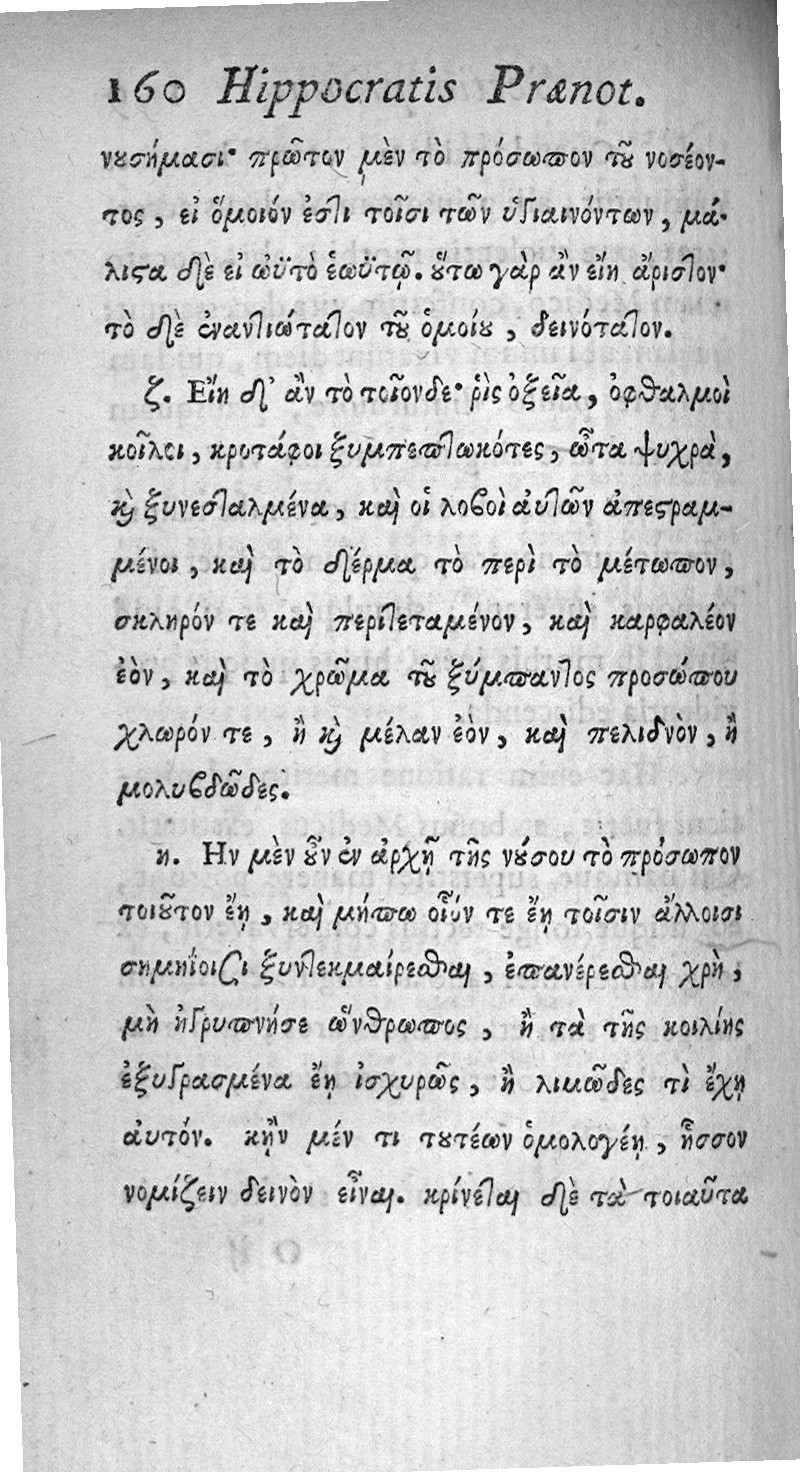 160 Hippocratis Prænot.
νουσήμασι· πρῶτον μὲν τὸ πρόσωπον τοῦ νοσέον-
τος, εἰ ὅμοιόν ἐστι τοῖσι τῶν ὑγιαινόντων, μά-
λιστα δὲ εἰ ωὐτὸ ἑωϋτῷ. οὕτω γὰρ ἂν εἴη ἄριστον·
τὸ δὲ ἐναντιώτατον τοῦ ὁμοίου, δεινότατον.
ζ. Εἴη δ' ἂν τὸ τοῖονδε· ῥὶς ὀξεῖα, ὀφθαλμοὶ
κοῖλοι, κροτάφοι ξυμπεπτωκότες, ὦτα ψυχρὰ,
καὶ ξυνεσταλμένα, καὶ οἱ λοβοὶ αὐτῶν ἀπεστραμ-
μένοι, καὶ τὸ δέρμα τὸ περὶ τὸ μέτωπον,
σκληρόν τε καὶ περιτεταμένον, καὶ καρφαλέον
ἐὸν, καὶ τὸ χρῶμα τοῦ ξύμπαντος προσώπου
χλωρόν τε, ἢ καὶ μέλαν ἐὸν, καὶ πελιδνὸν, ἢ
μολυβδῶδες.
η. Ην μὲν οὖν ἐν ἀρχῇ τῆς νούσου τὸ πρόσωπον
τοιοῦτον ἔῃ, καὶ μήπω οἷόν τε ἔῃ τοῖσιν ἄλλοισι
σημηΐοισι ξυντεκμαίρεσθαι, ἐπανέρεσθαι χρὴ,
μὴ ἠγρυπνήσε ὥνθρωπος, ἢ τὰ τῆς κοιλίης
ἐξυγρασμένα ἔῃ ἰσχυρῶς, ἢ λιμῶδες τὶ ἔχῃ
αὐτόν. κῂν μέν τι τουτέων ὁμολογέῃ, ἧσσον
νομίζειν δεινὸν εἶναι. κρίνεται δὲ τὰ τοιαῦτα